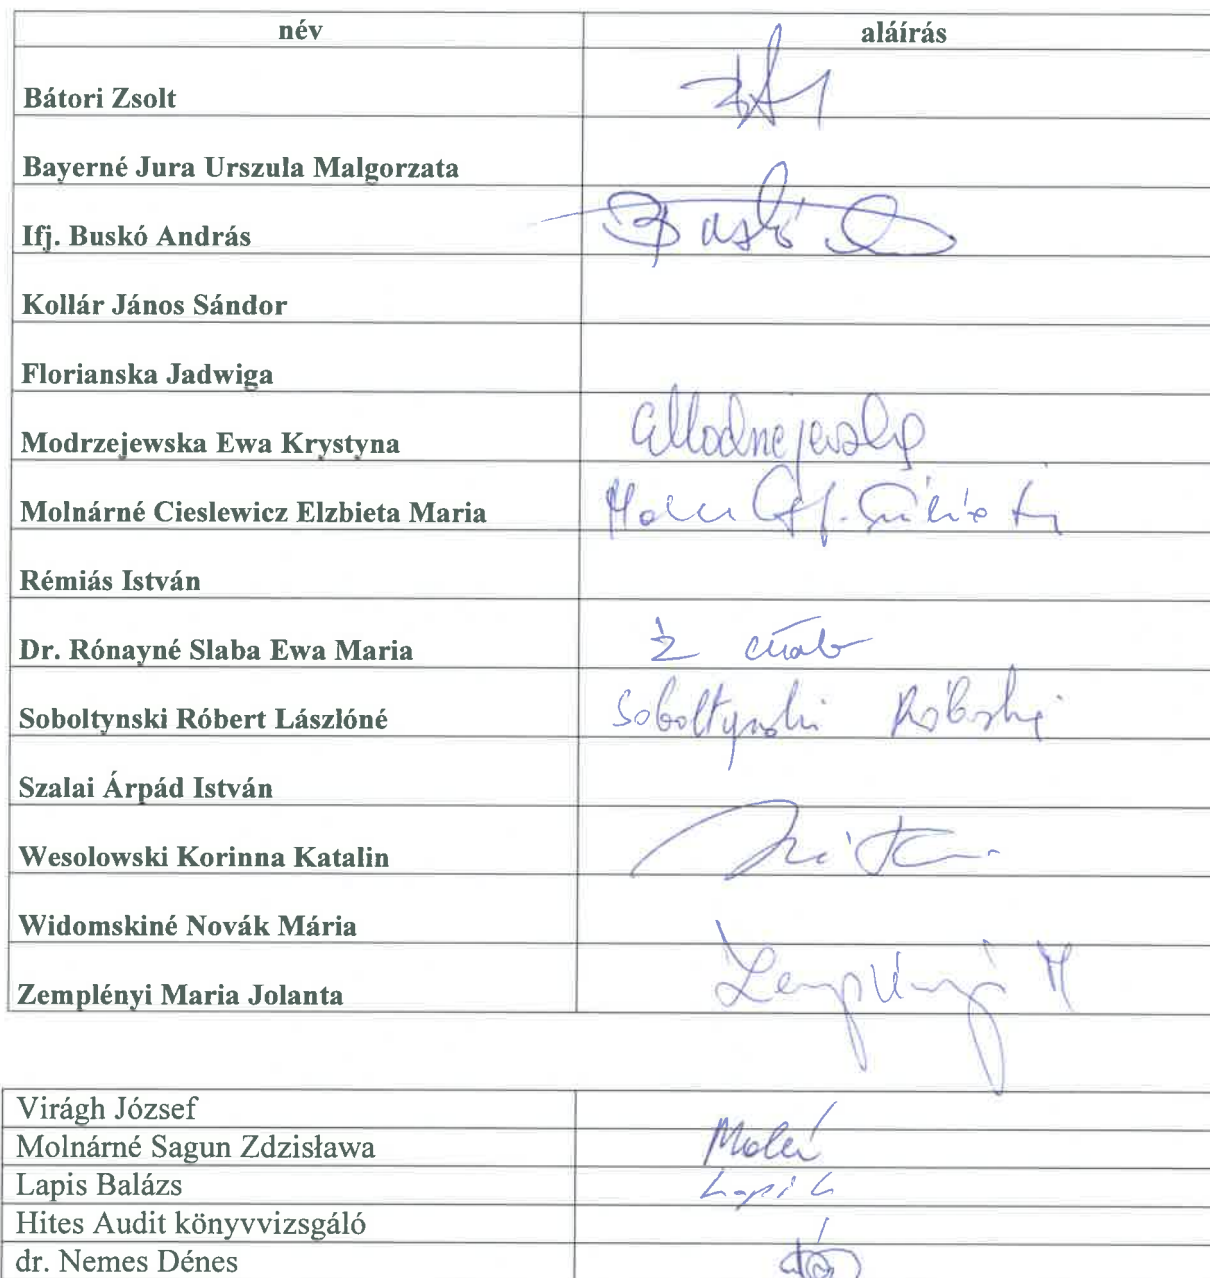 név aláírás
Bátori Zsolt
Bayerné Jura Urszula Malgorzata
Ifj. Buskó András Buskó
Kollár János Sándor
Florianska Jadwiga
Modrzejewska Ewa Krystyna
Molnárné Cieslewicz Elzbieta Maria
Rémiás István
Dr. Rónayné Slaba Ewa Maria
Soboltynski Róbert Lászlóné Soboltynski
Szalai Árpád István
Wesolowski Korinna Katalin
Widomskiné Novák Mária
Zemplényi Maria Jolanta Zemplényi M
Virágh József
Molnárné Sagun Zdzisława
Lapis Balázs
Hites Audit könyvvizsgáló
dr. Nemes Dénes